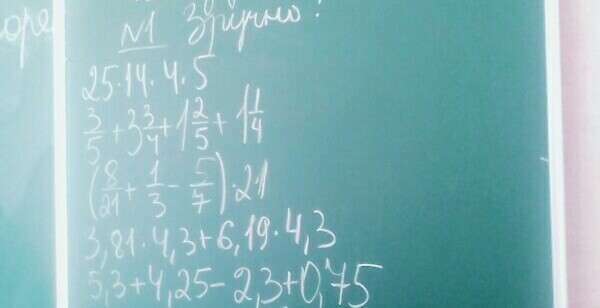 №1 Зручно!
25·14·4·5
3/5 + 3 3/4 + 1 2/5 + 1 1/4
(8/21 + 1/3 - 5/7)·21
3,81·4,3+6,19·4,3
5,3+4,25-2,3+0,75